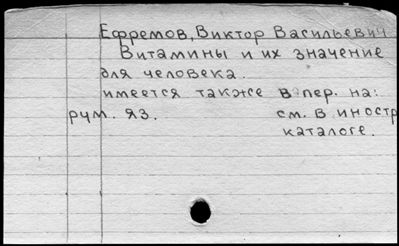 Ефремов, Виктор Васильевич
Витамины и их значение
для человека.
имеется также в пер. на:
рум. яз. см. в иностр
каталоге.